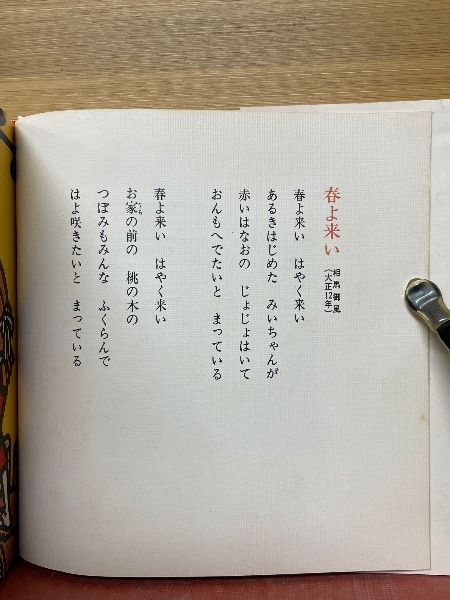 春よ来い
相馬御風
（大正12年）
春よ来い　はやく来い
あるきはじめた　みいちゃんが
赤いはなおの　じょじょはいて
おんもへでたいと　まっている
春よ来い　はやく来い
お家の前の　桃の木の
うち
つぼみもみんな　ふくらんで
はよ咲きたいと　まっている